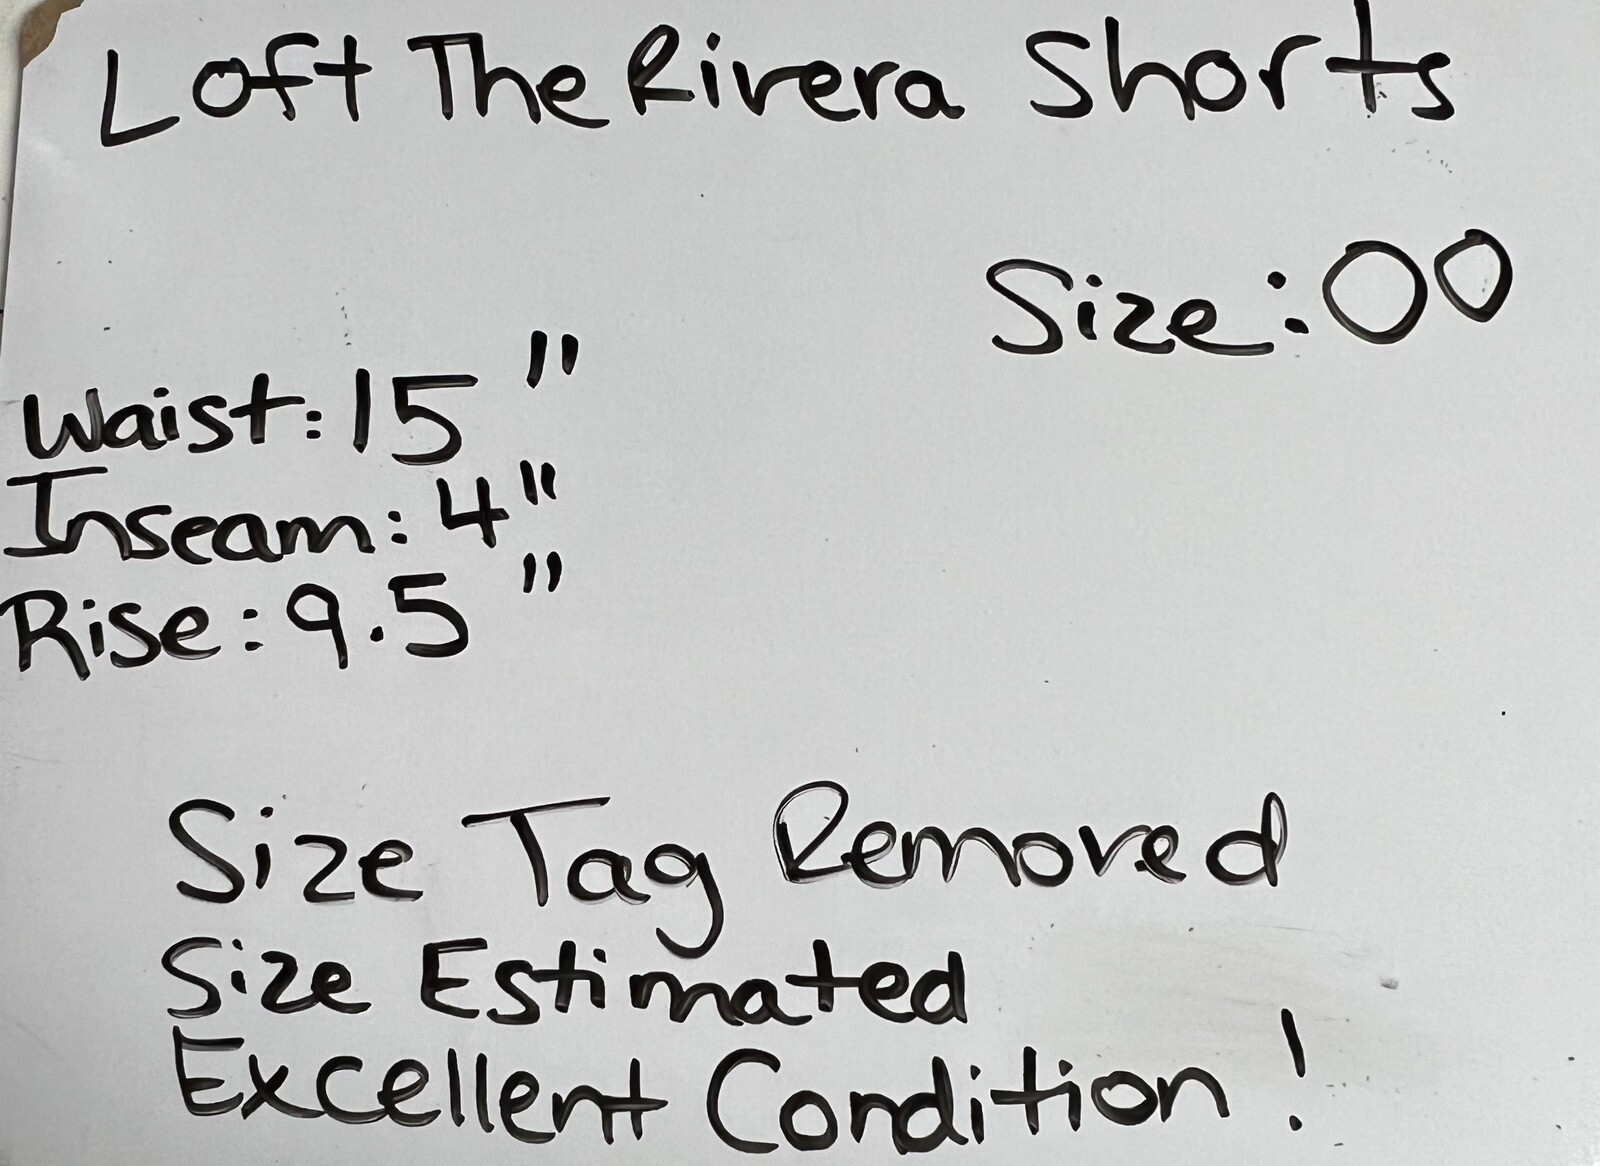 Loft The Rivera Shorts
Size: 00
Waist: 15"
Inseam: 4"
Rise: 9.5"
Size Tag Removed
Size Estimated
Excellent Condition!